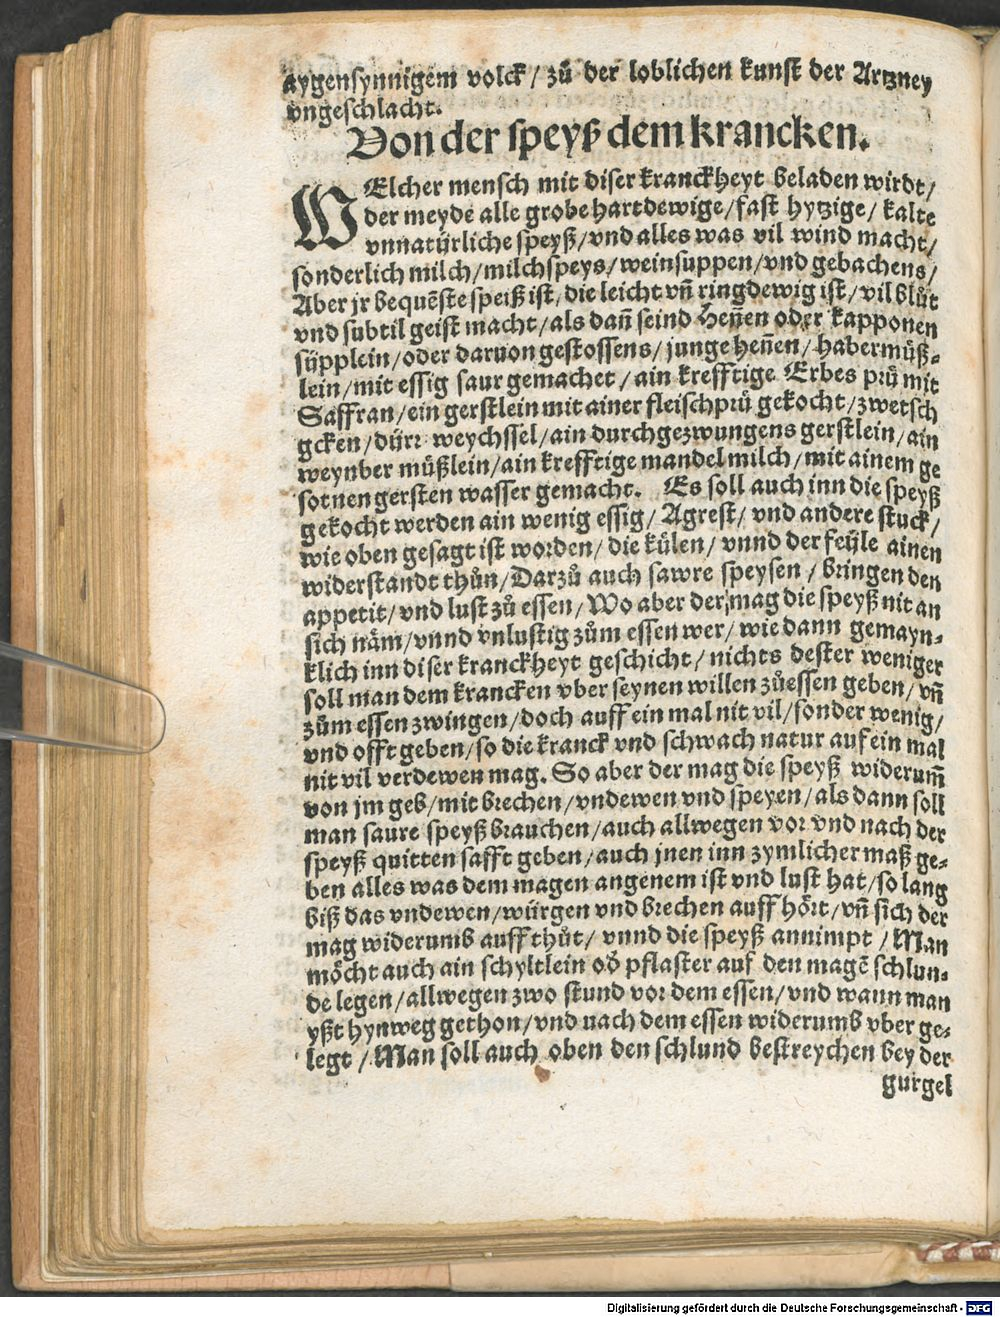 aygensynnigem volck / zů der loblichen kunst der Artzney
vngeschlacht.
Von der speyß dem krancken.
WElcher mensch mit diser kranckheyt beladen wirdt /
der meyde alle grobe hartdewige / fast hytzige / kalte
vnnatürliche speyß / vnd alles was vil wind macht /
sonderlich milch / milchspeys / weinsuppen / vnd gebachens /
Aber jr bequēste speiß ist, die leicht vn̄ ringdewig ist / vil blůt
vnd subtil geist macht / als dan̄ seind Hen̄en oder kapponen
süpplein / oder daruon gestossens / junge hen̄en / habermüß⸗
lein / mit essig saur gemachet / ain krefftige Erbes prü mit
Saffran / ein gerstlein mit ainer fleischprü gekocht / zwetsch
gcken / dürr weychssel / ain durchgezwungens gerstlein / ain
weynber müßlein / ain krefftige mandel milch / mit ainem ge
sotnen gersten wasser gemacht. Es soll auch inn die speyß
gekocht werden ain wenig essig / Agrest / vnd andere stuck /
wie oben gesagt ist worden / die külen / vnnd der feüle ainen
widerstandt thůn / Darzů auch sawre speysen / bringen den
appetit / vnd lust zů essen / Wo aber der mag die speyß nit an
sich näm / vnnd vnlustig zům essen wer / wie dann gemayn⸗
klich inn diser kranckheyt geschicht / nichts dester weniger
soll man dem krancken vber seynen willen zůessen geben / vn̄
zům essen zwingen / doch auff ein mal nit vil / sonder wenig /
vnd offt geben / so die kranck vnd schwach natur auf ein mal
nit vil verdewen mag. So aber der mag die speyß widerum̄
von jm geb / mit brechen / vndewen vnd speyen / als dann soll
man saure speyß brauchen / auch allwegen vor vnd nach der
speyß quitten safft geben / auch jnen inn zymlicher maß ge⸗
ben alles was dem magen angenem ist vnd lust hat / so lang
biß das vndewen / würgen vnd brechen auff hört / vn̄ sich der
mag widerumb auff thůt / vnnd die speyß annimpt / Man
möcht auch ain schyltlein od̕ pflaster auf den magē schlun⸗
de legen / allwegen zwo stund vor dem essen / vnd wann man
yßt hynweg gethon / vnd nach dem essen widerumb vber ge⸗
legt / Man soll auch oben den schlund bestreychen bey der
gurgel
Digitalisierung gefördert durch die Deutsche Forschungsgemeinschaft - DFG